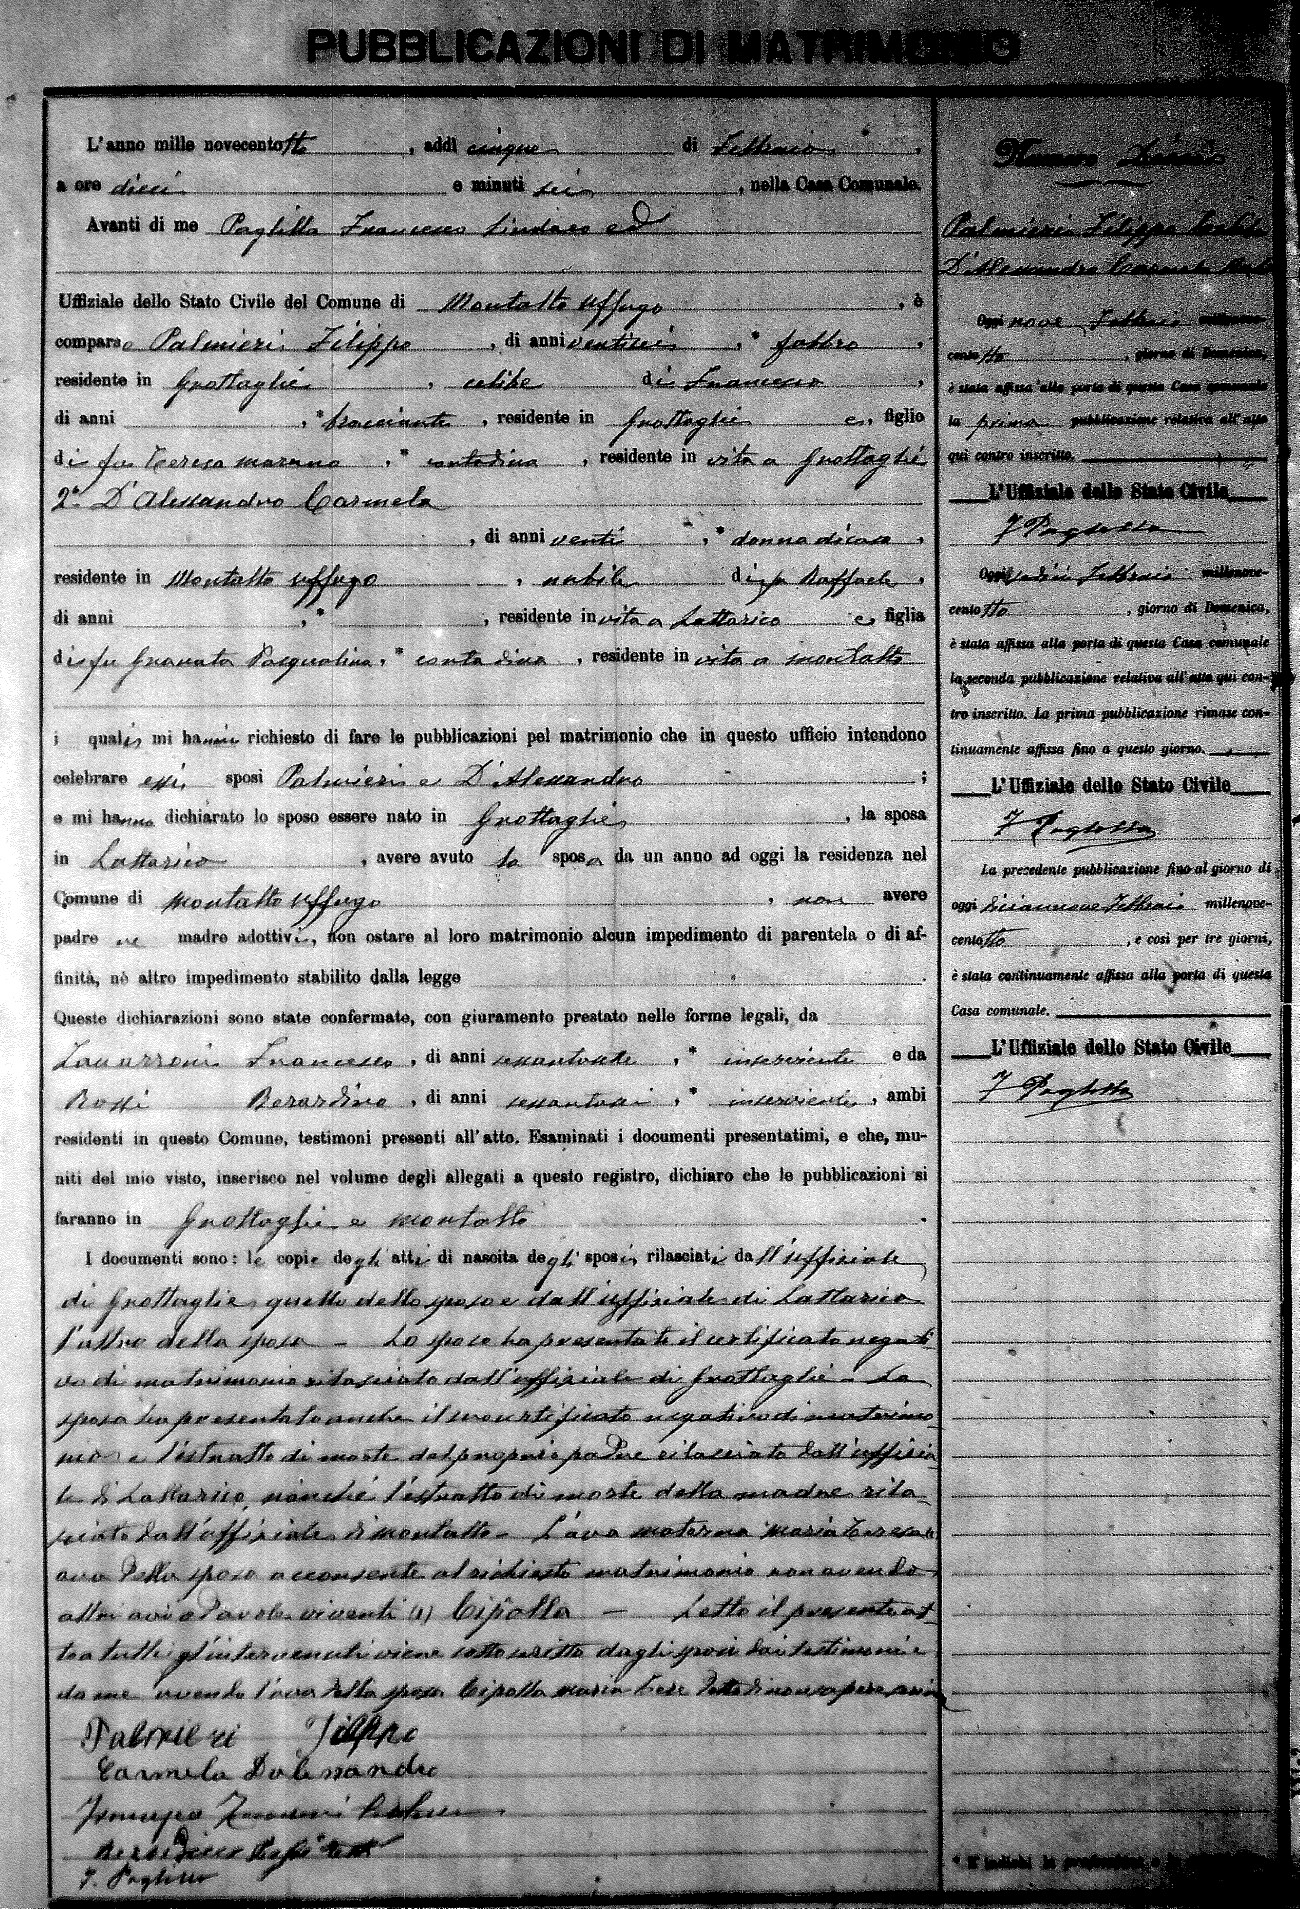 PUBBLICAZIONI DI MATRIMONIO
L'anno mille novecentotto, addì cinque di Febbraio,
a ore dieci e minuti sei, nella Casa Comunale.
Avanti di me Paglilla Francesco Sindaco ed
Uffiziale dello Stato Civile del Comune di Montalto Uffugo, è
comparso Palmieri Filippo, di anni ventisei, * fabbro,
residente in Grottaglie, celibe di Francesco,
di anni , * bracciante, residente in Grottaglie e, figlio
di fu Teresa Marano, * contadina, residente in vita a Grottaglie
2° D'Alessandro Carmela
, di anni venti, * donna di casa,
residente in Montalto Uffugo, nubile di fu Raffaele,
di anni , * , residente in vita a Lattarico e, figlia
di fu Granata Pasqualina, * contadina, residente in vita a Montalto
i quali mi hanno richiesto di fare le pubblicazioni pel matrimonio che in questo ufficio intendono
celebrare essi sposi Palmieri e D'Alessandro ;
e mi hanno dichiarato lo sposo essere nato in Grottaglie, la sposa
in Lattarico, avere avuto la sposa da un anno ad oggi la residenza nel
Comune di Montalto Uffugo, non avere
padre ne madre adottivi, non ostare al loro matrimonio alcun impedimento di parentela o di af-
finità, nè altro impedimento stabilito dalla legge .
Queste dichiarazioni sono state confermate, con giuramento prestato nelle forme legali, da
Francesco, di anni , * inserviente e da
Rossi Berardino, di anni , * inserviente, ambi
residenti in questo Comune, testimoni presenti all'atto. Esaminati i documenti presentatimi, e che, mu-
niti del mio visto, inserisco nel volume degli allegati a questo registro, dichiaro che le pubblicazioni si
faranno in Grottaglie e Montalto .
I documenti sono: le copie degli atti di nascita degli sposi, rilasciati dall'uffiziale
di Grottaglie quello dello sposo e dall'uffiziale di Lattarico
l'altro della sposa – Lo sposo ha presentato il certificato negati-
vo di matrimonio rilasciato dall'uffiziale di Grottaglie – La
sposa ha presentato anche il certificato negativo di matrimo-
nio e l'estratto di morte del proprio padre rilasciato dall'uffizia-
le di Lattarico, nonché l'estratto di morte della madre rila-
sciato dall'uffiziale di Montalto – L'ava materna Maria Teresa (1)
ava della sposa acconsente al richiesto matrimonio non avendo
altri avi o avole viventi (1) Cipolla – Letto il presente at-
to a tutti gl'intervenuti viene sottoscritto dagli sposi dai testimoni e
da me avendo l'ava della sposa Cipolla Maria Teresa detto di non sapere
Palmieri Filippo
Carmela Dalessandro
Francesco
F. Paglilla
Numero
Palmieri Filippo Celibe
D'Alessandro Carmela
Oggi nove Febbraio millenove-
centotto, giorno di Domenica,
è stata affissa alla porta di questa Casa comunale
la prima pubblicazione relativa all'atto
qui contro inscritto.
L'Uffiziale dello Stato Civile
F Paglilla
Oggi sedici Febbraio millenove-
centotto, giorno di Domenica,
è stata affissa alla porta di questa Casa comunale
la seconda pubblicazione relativa all'atto qui con-
tro inscritto. La prima pubblicazione rimase con-
tinuamente affissa fino a questo giorno.
L'Uffiziale dello Stato Civile
F Paglilla
La precedente pubblicazione fino al giorno di
oggi diciannove Febbraio millenove-
centotto, e così per tre giorni,
è stata continuamente affissa alla porta di questa
Casa comunale.
L'Uffiziale dello Stato Civile
F Paglilla
* S'indichi la professione o la